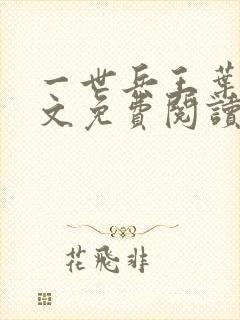 一世兵王葉
文免費閱讀
花飛非